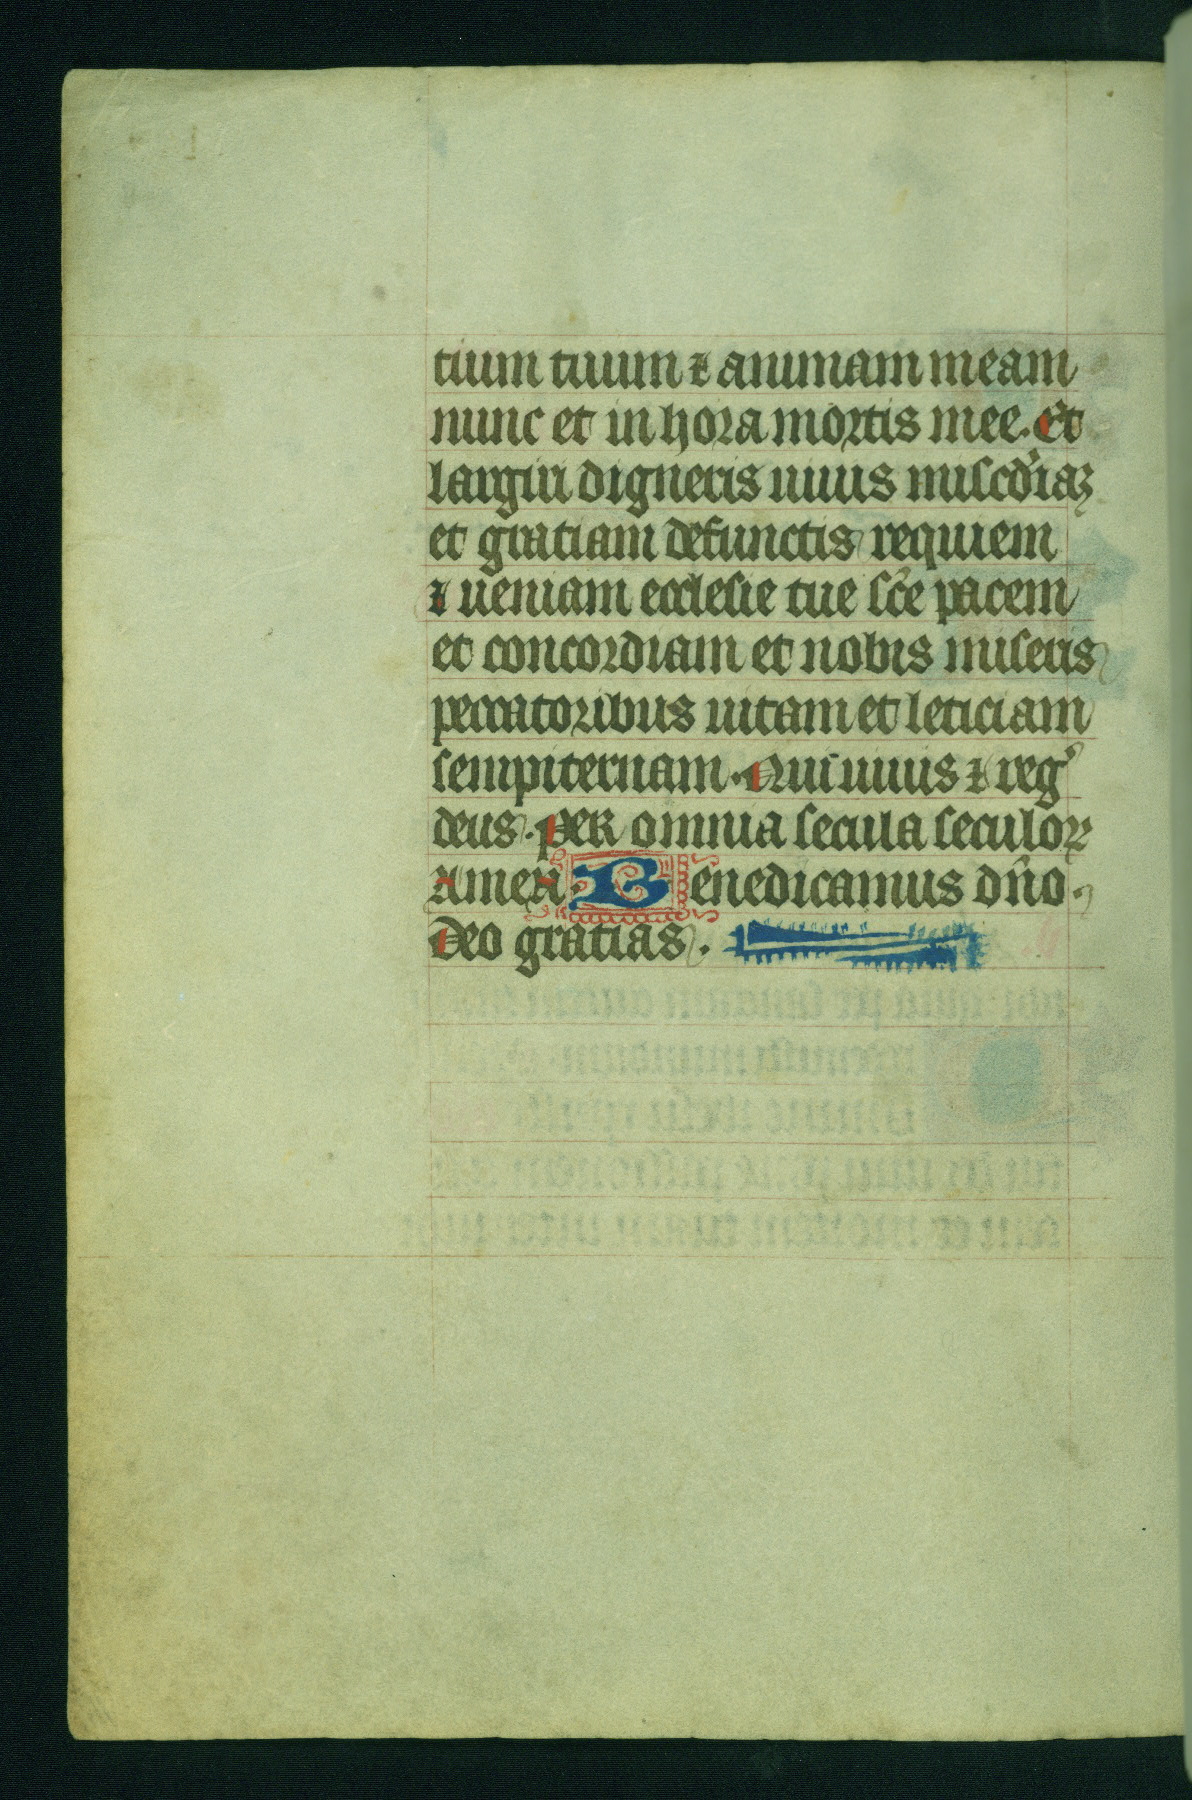 tium tuum ⁊ animam meam
nunc et in hora mortis mee. Et
largiri digneris uiuis miscd̃iaȝ
et gratiam defunctis requiem
⁊ ueniam ecclesie tue sc̃e pacem
et concordiam et nobis miseris
peccatoribus uitam et leticiam
sempiternam. Qui uiuis ⁊ regꝰ
deus. per omnia secula seculoꝝ
Amen. Benedicamus dño.
Deo gratias.